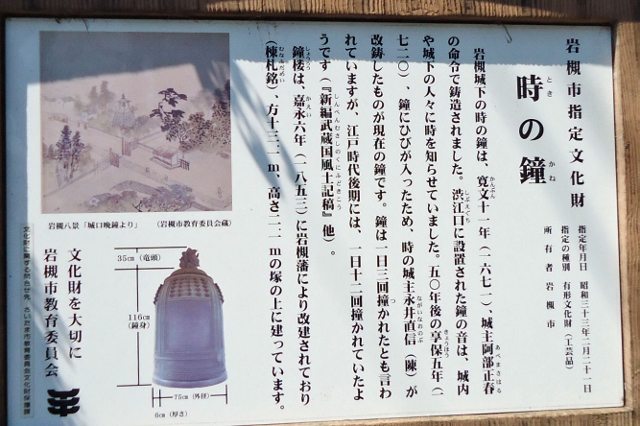 岩槻市指定文化財
時の鐘
とき
かね
指定年月日 昭和三十三年二月二十一日
指定の種別 有形文化財(工芸品)
所有者 岩槻市
岩槻城下の時の鐘は、寛文十一年(一六七一)、城主阿部正春
かんぶん
あべまさはる
の命令で鋳造されました。渋江口に設置された鐘の音は、城内
しぶえぐち
や城下の人々に時を知らせていました。五〇年後の享保五年(一
きょうほう
七二〇)、鐘にひびが入ったため、時の城主永井直信(陳)が
ながいなおのぶ
改鋳したものが現在の鐘です。鐘は一日三回撞かれたとも言わ
つ
れていますが、江戸時代後期には、一日十二回撞かれていたよ
うです(『新編武蔵国風土記稿』他)。
しんぺんむさしのくにふどきこう
鐘楼は、嘉永六年(一八五三)に岩槻藩により改建されており
しょうろう
かえい
(棟札銘)、方十三・一m、高さ二・二mの塚の上に建っています。
むなふだめい
岩槻八景「城口晩鐘より」 (岩槻市教育委員会蔵)
35cm(竜頭)
116cm
(鐘身)
75cm(外径)
6cm(厚さ)
文化財を大切に
岩槻市教育委員会